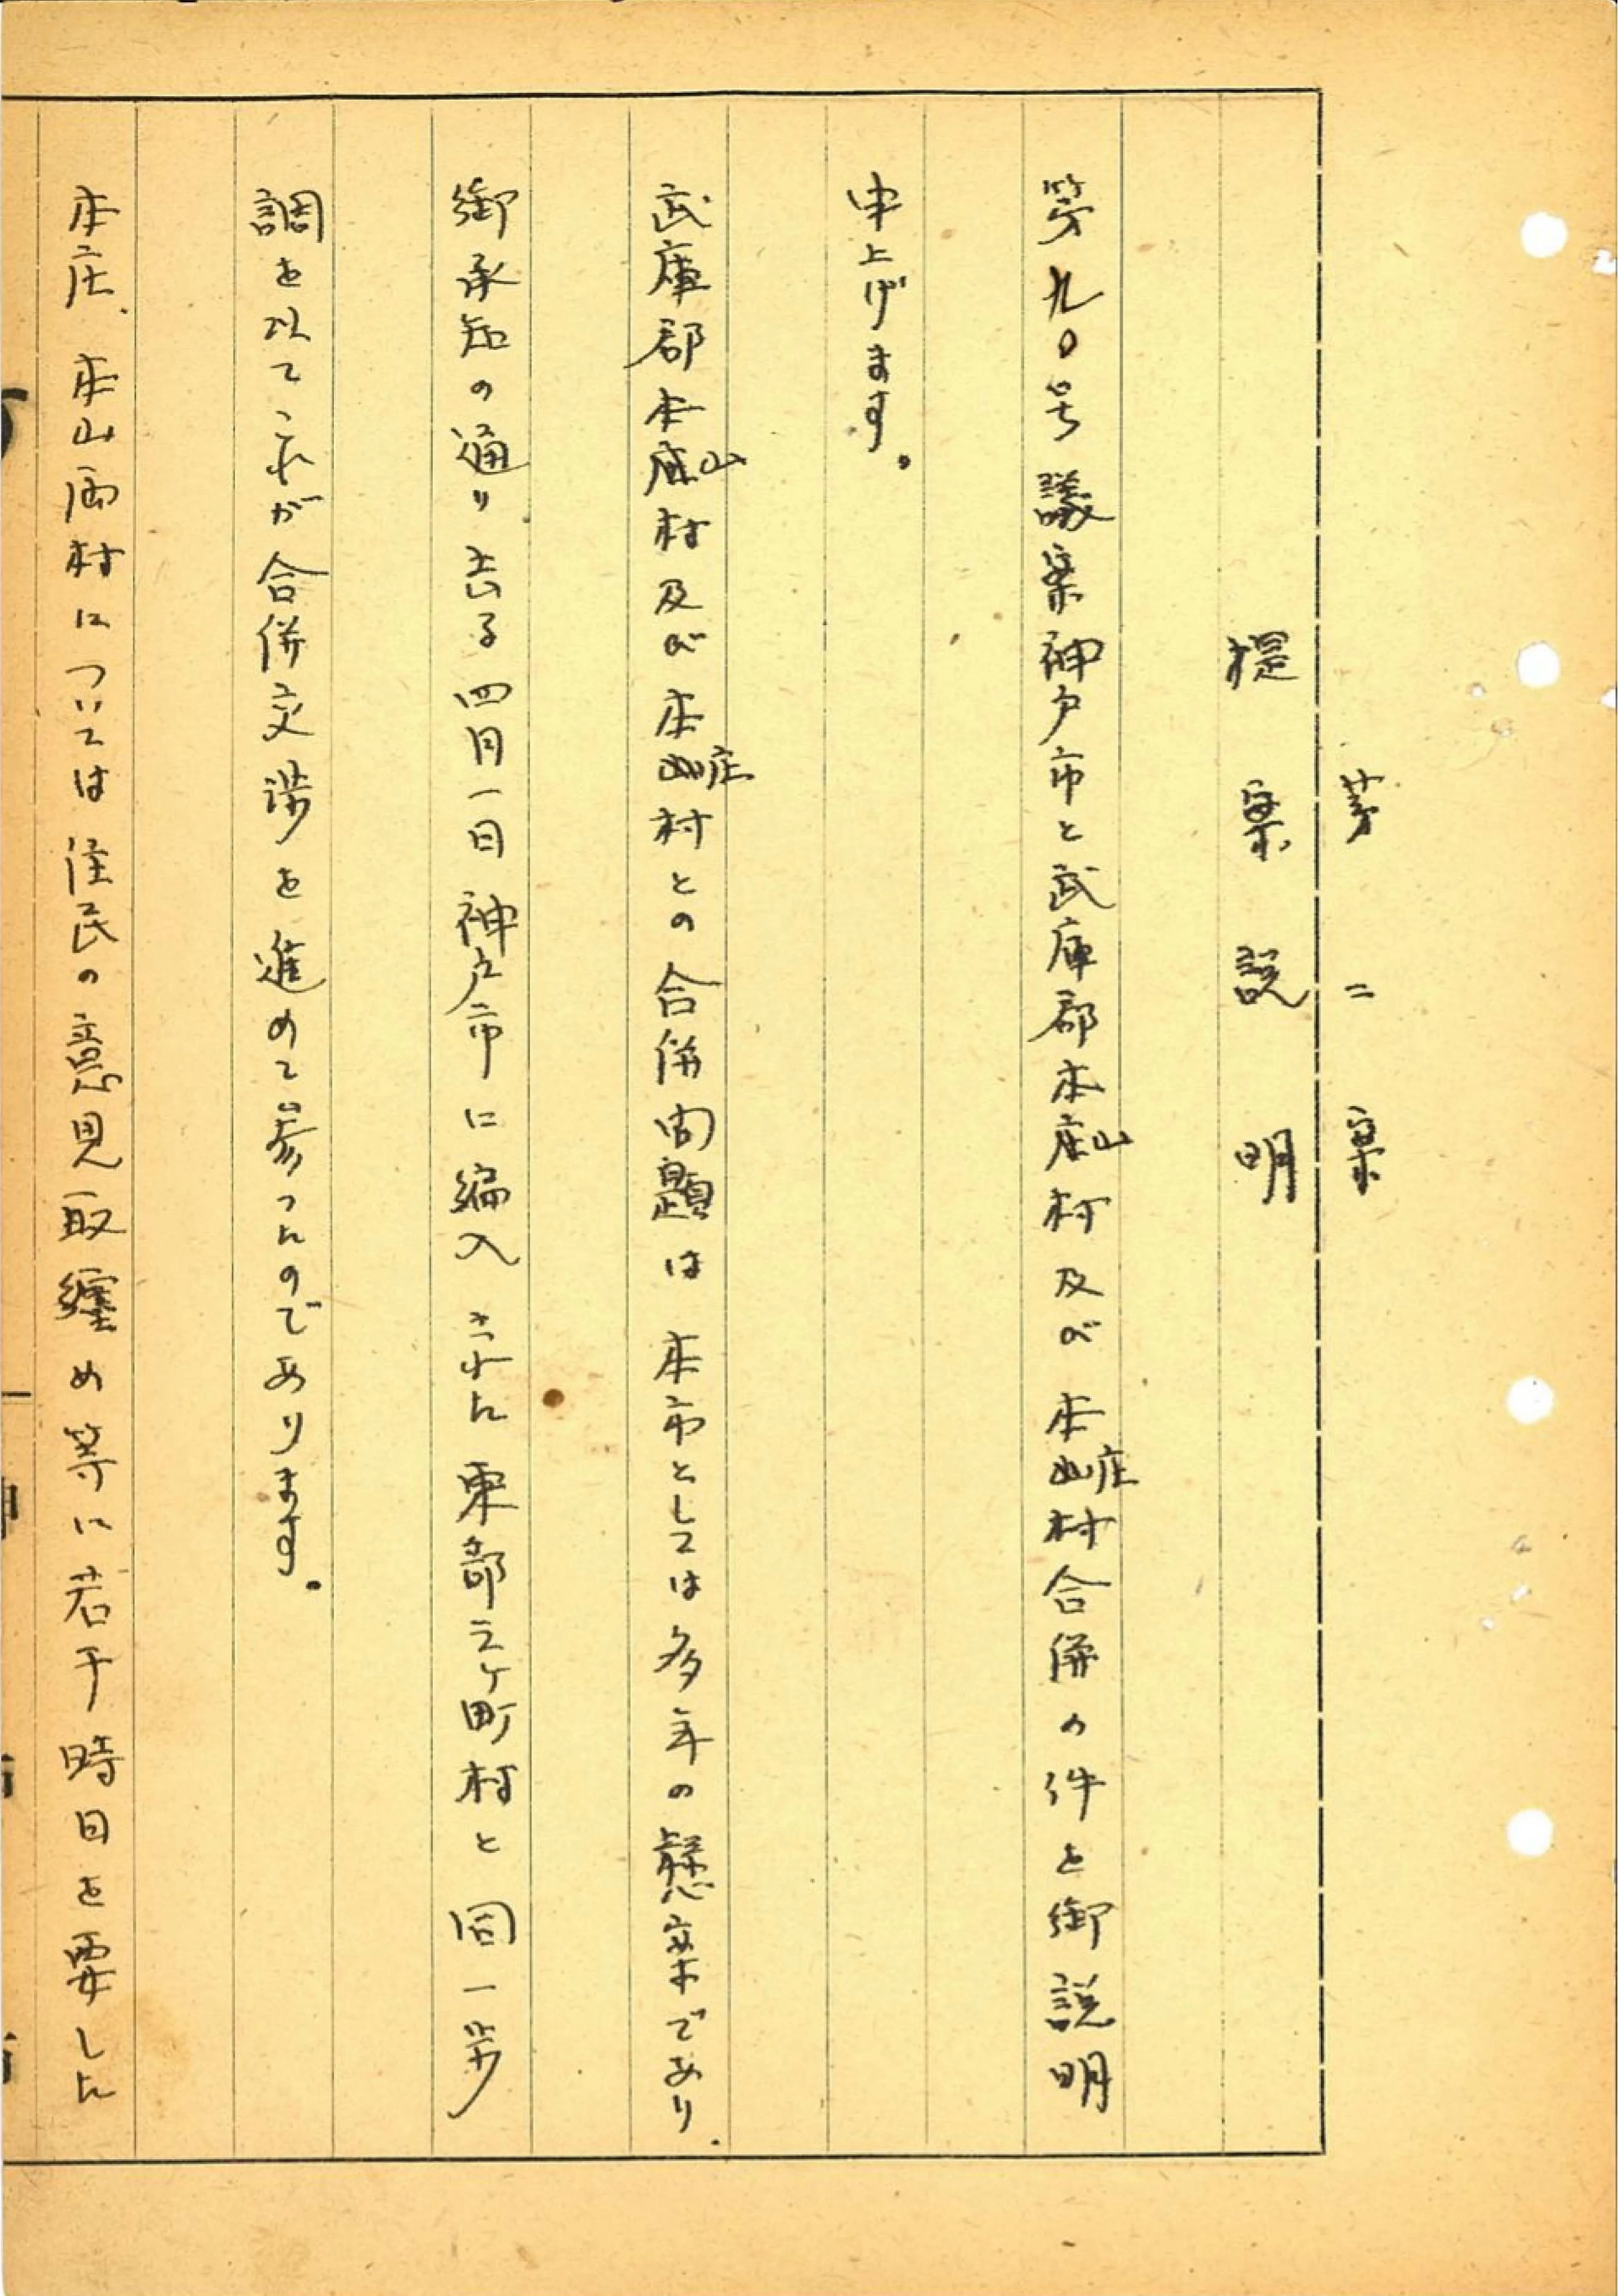 第二案
提案説明
第九〇号議案神戸市と武庫郡本山村及び本庄村合併の件を御説明
申上げます。
武庫郡本山村及び本庄村との合併問題は本市としては多年の懸案であり、
御承知の通り去る四月一日神戸市に編入された東部三ケ町村と同一歩
調を以てこれが合併交渉を進めて参つたのであります。
本庄、本山両村については住民の意見取纏め等に若干時日を要した